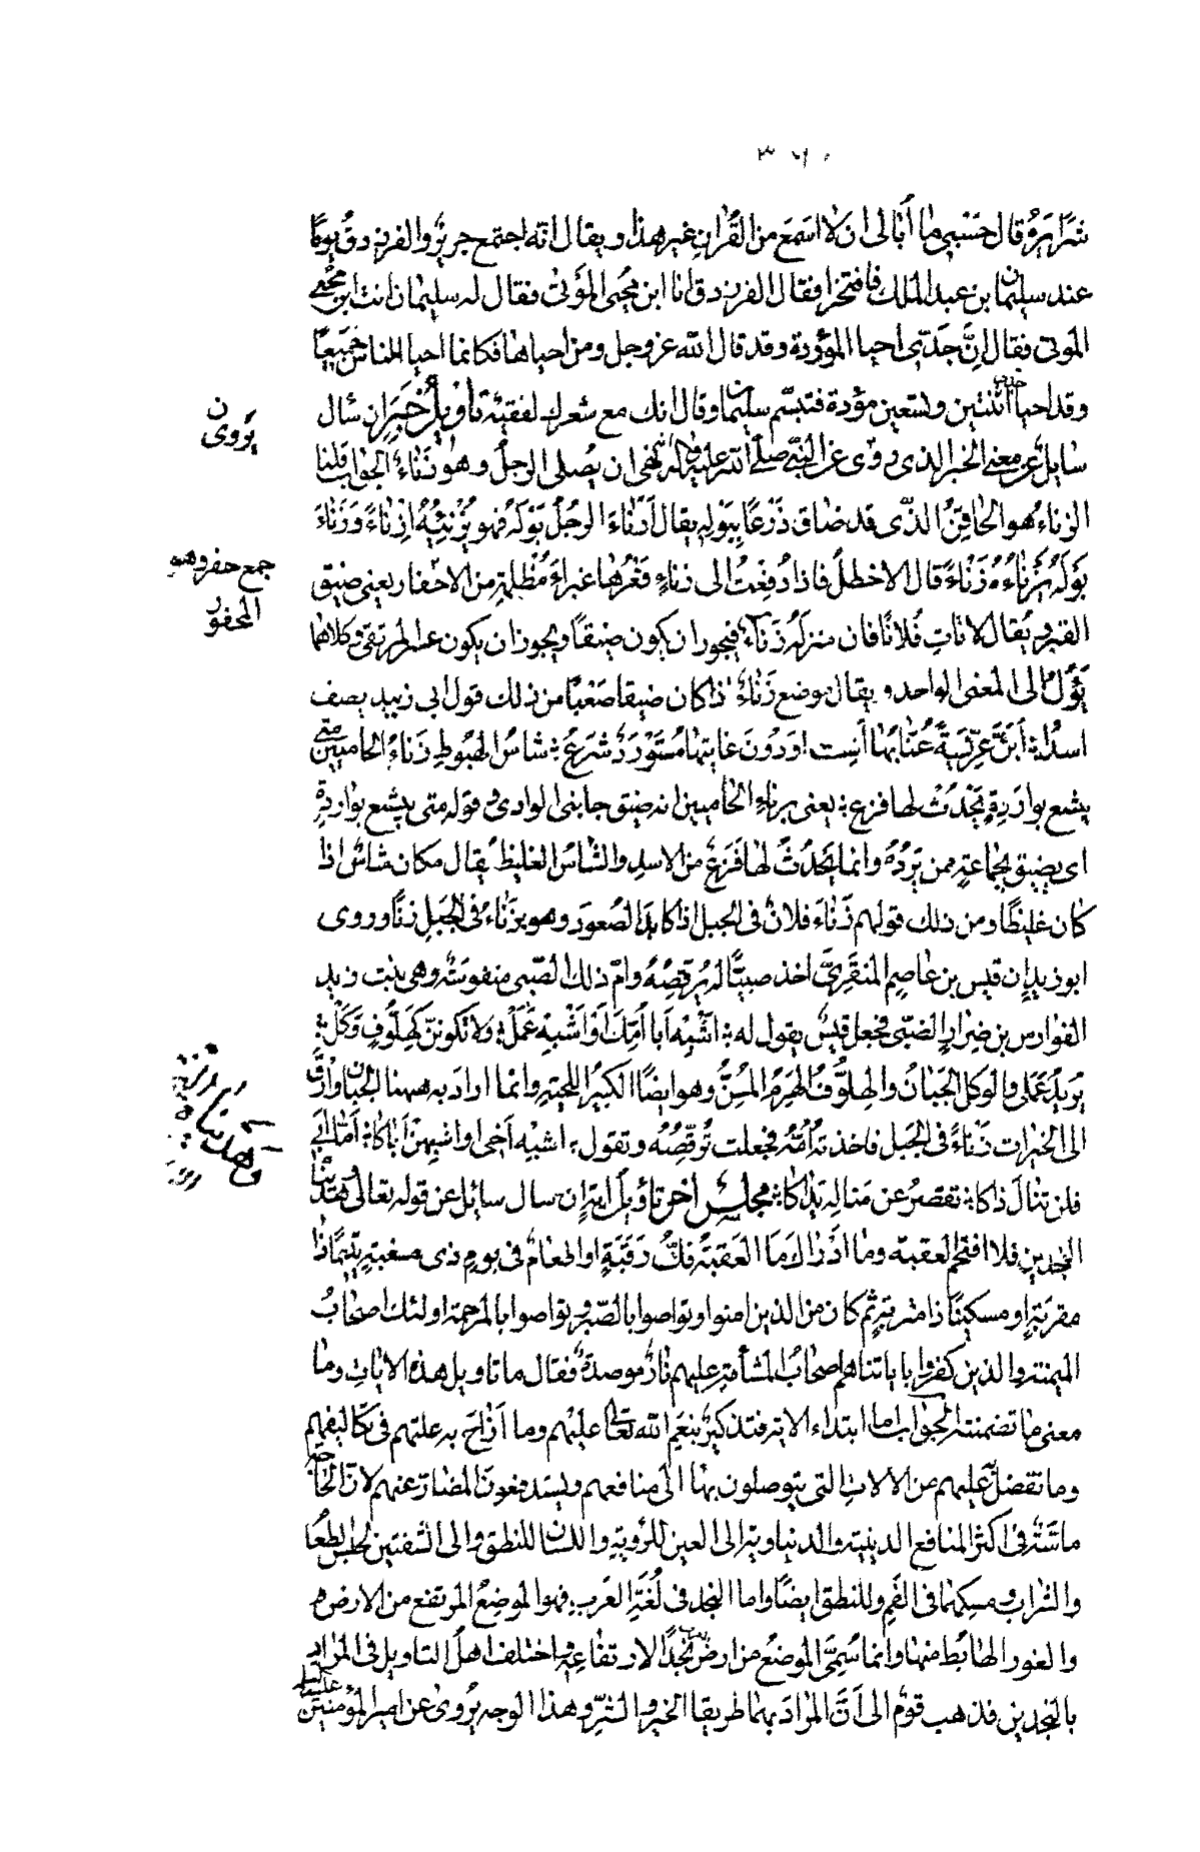 ٣٦٠
شرّا يره قال حسبي ما أبالي ان لا اسمع من القران غير هذا ويقال انه اجتمع جرير والفرزدق يومًا
عند سليمان بن عبد الملك فافتخرا فقال الفرزدق انا ابن محيى المؤتى فقال له سليمان انت ابن محيى
الموتى فقال انّ جدّى احيا المؤودة وقد قال الله عز وجل ومن احياها فكانما احيا الناس جميعًا
وقد احيا جدى اثنتين وتسعين مؤدة فتبسّم سليمان وقال انك مع شعرك لفقيه تأويل خبر ان سال
سايل عن معنى الخبر الذى روى عن النبى صلى الله عليه واله انه نهى ان يصلى الرجل وهو زناء الجواب قلنا
الزناء هو الحاقن الذى قد ضاق ذرعًا ببوله يقال أزناء الرجل بوله فهو يزنئه ازناءً وزناء
بوله يزناء زناءً قال الاخطل فاذا دفعت الى زناء قعرها غبراء مظلمة من الاحفار يعنى ضيق
القبر ويقال لا تات فلانًا فان منزله زناء فيجوز ان يكون ضيقًا ويجوز ان يكون عسر المرتقى وكلاهما
يؤل الى المعنى الواحد ويقال موضع زناء اذا كان ضيقا صعبًا من ذلك قول ابى زبيد يصف
اسدًا أبن عرّيسة عنابها أشب اودون غابتها مستورد شرع شاس الهبوط زناء الحاميين متى
يشع بواردة يحدث لها فزع يعنى بزناء الحاميين انه ضيق جانبى الوادى وقوله متى يشع بواردة
اى يضيق بجماعة ممن يرده وانما يحدث لها فزع من الاسد والشاس الغليظ يقال مكان شاس اذا
كان غليظًا ومن ذلك قولهم زناء فلان فى الجبل اذا كابد الصعود وهو يزناء فى الجبل زنًا وروى
ابو زيد ان قيس بن عاصم المنقرى اخذ صبيًّا له يرقصه وامّ ذلك الصبى منفوسة وهى بنت زيد
الفوارس بن ضرار الضبى فجعل قيس يقول له اشبه أبا أمك او اشبه عمل ولا تكونن كهلوف وكل
يريد عملى والوكل الجبان والهلّوف الهرم المسنّ وهو ايضًا الكبير اللحية وانما اراد به ههنا الجبان وارق
الى الخيرات زناءً فى الجبل فاخذته أمّه فجعلت ترقصه وتقول اشبه أخى او اشبهن أباكا أمّا أبى
فلن تنال ذاكا تقصر عن مناله يداكا مجلس اخر تاويل اية ان سال سائل عن قوله تعالى وهديناه
النجدين فلا اقتحم العقبة وما ادراك ما العقبة فكّ رقبة او اطعام فى يوم ذى مسغبة يتيمًا ذا
مقربة او مسكينًا ذا متربة ثم كان من الذين امنوا وتواصوا بالصبر وتواصوا بالمرحمة اولئك اصحاب
الميمنة والذين كفروا باياتنا هم اصحاب المشأمة عليهم نار موصدة فقال ما تاويل هذه الايات وما
معنى ما تضمنته الجواب اما ابتداء الاية فتذكير بنعم الله تعالى عليهم وما أزاح به علتهم فى تكاليفهم
وما تفضل عليهم من الالات التى يتوصلون بها الى منافعهم ويستدفعون المضار عنهم لان الحاجة
ماسّة فى اكثر المنافع الدينية والدنياوية الى العين للرؤية واللسان للنطق والى الشفتين لحبس الطعام
والشراب ومسكهما فى الفم وللنطق ايضًا واما النجد فى لغة العرب فهو الموضع المرتفع من الارض
والغور الهابط منها وانما سمى الموضع من ارض العرب نجدًا لارتفاعه واختلف اهل التاويل فى المراد
بالنجدين فذهب قوم الى أنّ المراد بهما طريقا الخير والشر وهذا الوجه يروى عن امير المؤمنين عليه السلم
يروى ن
جمع حفر وهو
المحفور